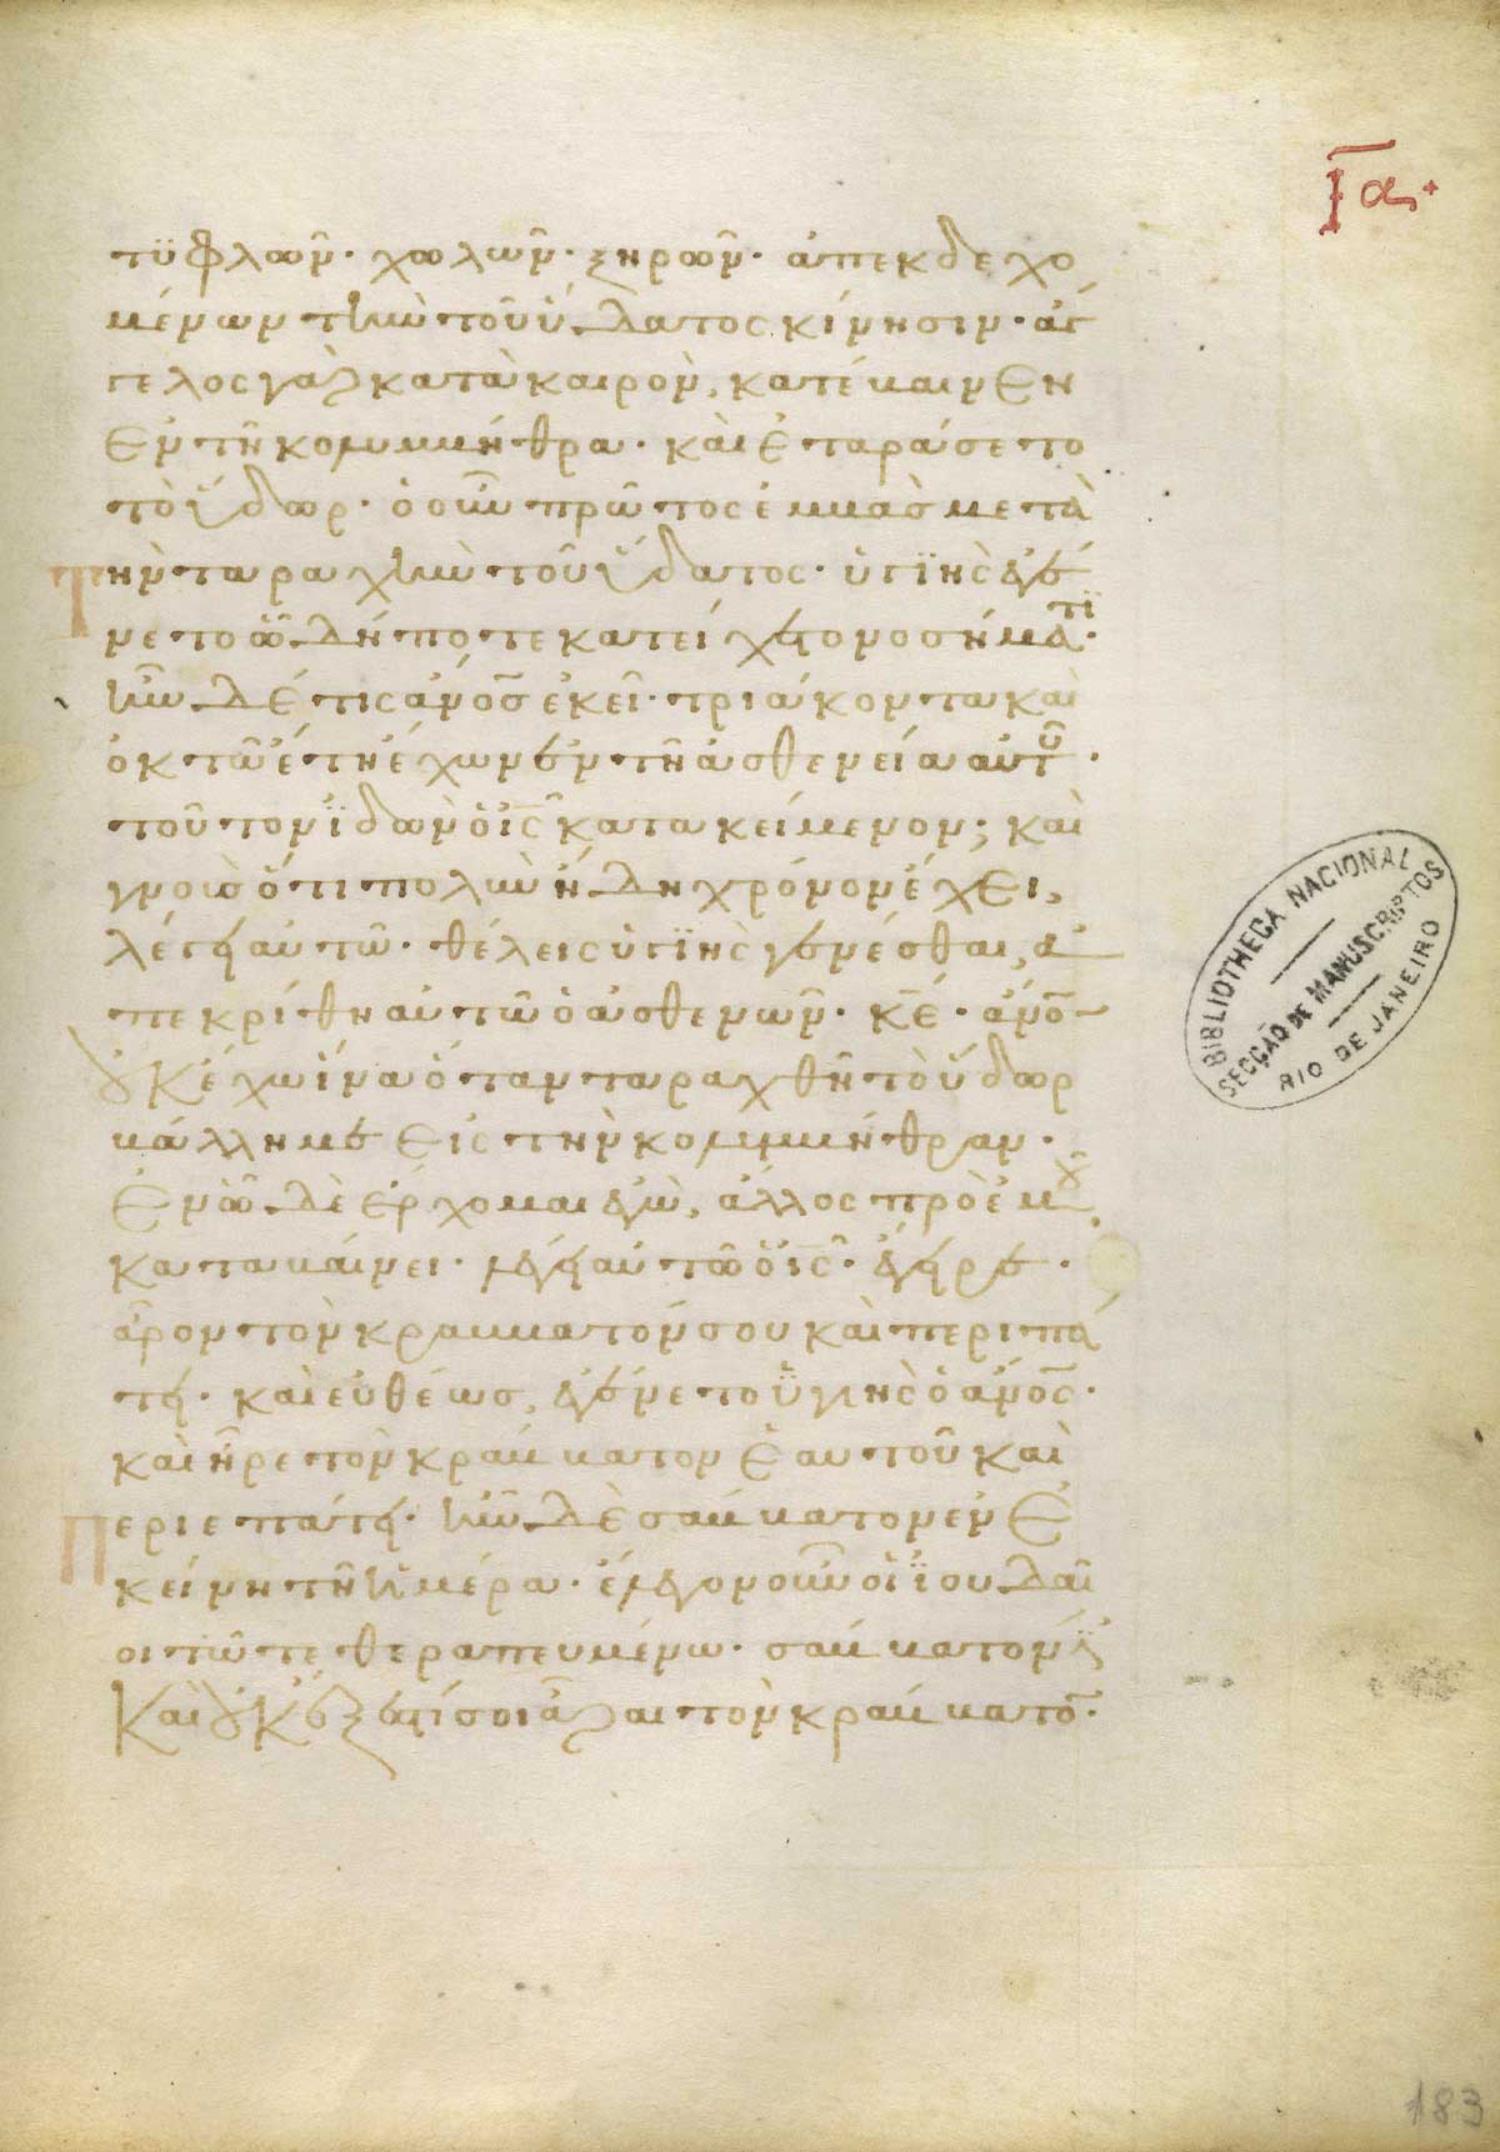 ια·
τϋφλῶν· χωλῶν· ξηρῶν· ἀπεκδεχο
μένων τὴν τοῦ ὕδατος κίνησιν· ἄγ
γελος γὰρ κατὰ καιρὸν, κατέβαινεν
ἐν τῆ κολυμβήθρα· καὶ ἐταράσετο
τὸ ὕδωρ· ὁ οὖν πρῶτος ἐμβὰσ μετὰ
τὴν ταραχὴν τοῦ ὕδατος· ὑγιὴς ἐγέ
νετο ὧ δήποτε κατείχετο νοσήματι·
ἦν δέ τις ἄνος ἐκεῖ· τριάκοντα καὶ
ὀκτὼ ἔτη ἔχων ἐν τῆ ἀσθενεία αὐτοῦ·
τοῦτον ἰδὼν ὁ ις κατακείμενον; καὶ
γνοὺσ ὅτι πολὺν ἤδη χρόνον ἔχει,
λέγει αὐτῶ· θέλεις ὑγιὴς γενέσθαι, ἀ
πεκρίθη αὐτῶ ὁ ἀσθενῶν· κε· ἄνον
οὐκ ἔχω ἵνα ὅταν ταραχθῆ τὸ ὕδωρ
βάλλη με εἰς τὴν κολυμβήθραν·
ἐν ὧ δὲ ἔρχομαι ἐγὼ, ἄλλος πρὸ ἐμοῦ
καταβαίνει· λέγει αὐτῶ ὁ ις· ἔγειρε·
ἆρον τὸν κράββατόν σου καὶ περιπά
τει· καὶ εὐθέωσ, ἐγένετο ὑγιὴς ὁ ἄνος·
καὶ ἦρε τὸν κράββατον ἑαυτοῦ καὶ
περιεπάτει· ἦν δὲ σάββατον ἐν ἐ
κείνη τῆ ἡμέρα· ἔλεγον οὖν οἱ ἰουδαῖ
οι τῶ τεθεραπευμένω· σάββατόν ἐστι
καὶ οὐκ ἔξεστί σοι ἆραι τὸν κράββατον·
BIBLIOTHECA NACIONAL
SECÇÃO DE MANUSCRIPTOS
RIO DE JANEIRO
183